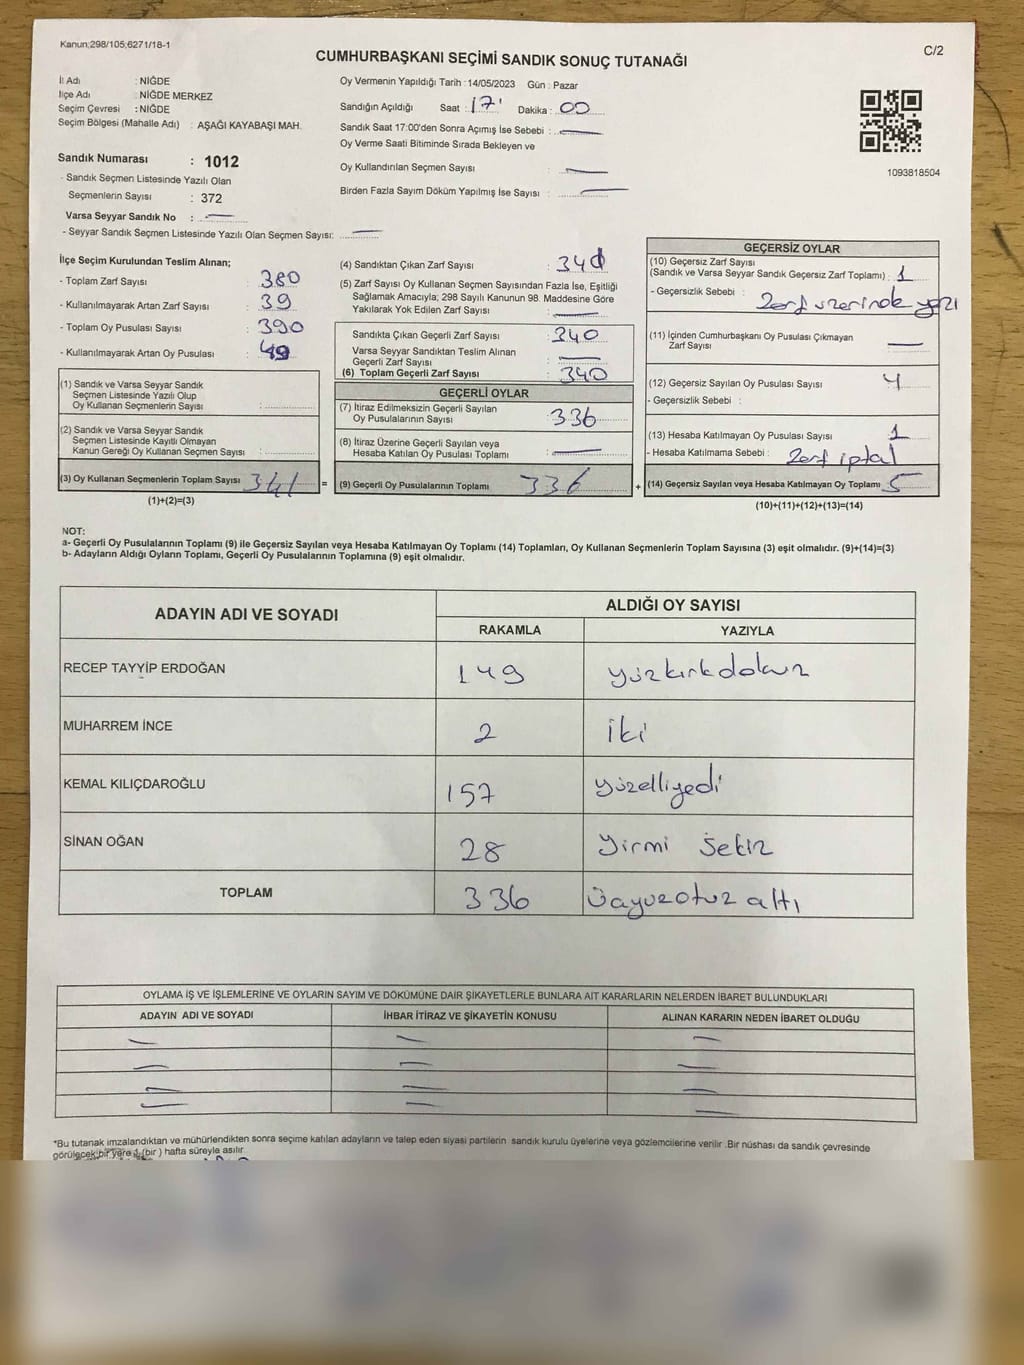 Kanun;298/105;6271/18-1
C/2
CUMHURBAŞKANI SEÇİMİ SANDIK SONUÇ TUTANAĞI
İl Adı : NİĞDE
İlçe Adı : NİĞDE MERKEZ
Seçim Çevresi : NİĞDE
Seçim Bölgesi (Mahalle Adı) : AŞAĞI KAYABAŞI MAH.
Sandık Numarası : 1012
- Sandık Seçmen Listesinde Yazılı Olan
Seçmenlerin Sayısı : 372
Varsa Seyyar Sandık No : —
- Seyyar Sandık Seçmen Listesinde Yazılı Olan Seçmen Sayısı: —
Oy Vermenin Yapıldığı Tarih : 14/05/2023 Gün : Pazar
Sandığın Açıldığı Saat : 17 Dakika : 00
Sandık Saat 17:00'den Sonra Açımış İse Sebebi : —
Oy Verme Saati Bitiminde Sırada Bekleyen ve
Oy Kullandırılan Seçmen Sayısı : —
Birden Fazla Sayım Döküm Yapılmış İse Sayısı : —
1093818504
İlçe Seçim Kurulundan Teslim Alınan;
- Toplam Zarf Sayısı : 380
- Kullanılmayarak Artan Zarf Sayısı : 39
- Toplam Oy Pusulası Sayısı : 390
- Kullanılmayarak Artan Oy Pusulası : 49
(1) Sandık ve Varsa Seyyar Sandık
Seçmen Listesinde Yazılı Olup
Oy Kullanan Seçmenlerin Sayısı :
(2) Sandık ve Varsa Seyyar Sandık
Seçmen Listesinde Kayıtlı Olmayan
Kanun Gereği Oy Kullanan Seçmen Sayısı :
(3) Oy Kullanan Seçmenlerin Toplam Sayısı 341 =
(1)+(2)=(3)
(4) Sandıktan Çıkan Zarf Sayısı :
(5) Zarf Sayısı Oy Kullanan Seçmen Sayısından Fazla İse, Eşitliği
Sağlamak Amacıyla; 298 Sayılı Kanunun 98. Maddesine Göre
Yakılarak Yok Edilen Zarf Sayısı : —
Sandıkta Çıkan Geçerli Zarf Sayısı : 340
Varsa Seyyar Sandıktan Teslim Alınan
Geçerli Zarf Sayısı : —
(6) Toplam Geçerli Zarf Sayısı : 340
GEÇERLİ OYLAR
(7) İtiraz Edilmeksizin Geçerli Sayılan
Oy Pusulalarının Sayısı : 336
(8) İtiraz Üzerine Geçerli Sayılan veya
Hesaba Katılan Oy Pusulası Toplamı : —
(9) Geçerli Oy Pusulalarının Toplamı 336 +
GEÇERSİZ OYLAR
(10) Geçersiz Zarf Sayısı
(Sandık ve Varsa Seyyar Sandık Geçersiz Zarf Toplamı) : 1
- Geçersizlik Sebebi : Zarf üzerinde yazı
(11) İçinden Cumhurbaşkanı Oy Pusulası Çıkmayan
Zarf Sayısı : —
(12) Geçersiz Sayılan Oy Pusulası Sayısı : 4
- Geçersizlik Sebebi :
(13) Hesaba Katılmayan Oy Pusulası Sayısı : 1
- Hesaba Katılmama Sebebi : Zarf iptal
(14) Geçersiz Sayılan veya Hesaba Katılmayan Oy Toplamı 5
(10)+(11)+(12)+(13)=(14)
NOT:
a- Geçerli Oy Pusulalarının Toplamı (9) ile Geçersiz Sayılan veya Hesaba Katılmayan Oy Toplamı (14) Toplamları, Oy Kullanan Seçmenlerin Toplam Sayısına (3) eşit olmalıdır. (9)+(14)=(3)
b- Adayların Aldığı Oyların Toplamı, Geçerli Oy Pusulalarının Toplamına (9) eşit olmalıdır.
ADAYIN ADI VE SOYADI ALDIĞI OY SAYISI
RAKAMLA YAZIYLA
RECEP TAYYİP ERDOĞAN 149 yüzkırkdokuz
MUHARREM İNCE 2 iki
KEMAL KILIÇDAROĞLU 157 yüzelliyedi
SİNAN OĞAN 28 yirmi sekiz
TOPLAM 336 Üçyüzotuz altı
OYLAMA İŞ VE İŞLEMLERİNE VE OYLARIN SAYIM VE DÖKÜMÜNE DAİR ŞİKAYETLERLE BUNLARA AİT KARARLARIN NELERDEN İBARET BULUNDUKLARI
ADAYIN ADI VE SOYADI İHBAR İTİRAZ VE ŞİKAYETİN KONUSU ALINAN KARARIN NEDEN İBARET OLDUĞU
— — —
— — —
— — —
— — —
*Bu tutanak imzalandıktan ve mühürlendikten sonra seçime katılan adayların ve talep eden siyasi partilerin sandık kurulu üyelerine veya gözlemcilerine verilir .Bir nüshası da sandık çevresinde
görülecek bir yere 1 (bir ) hafta süreyle asılır